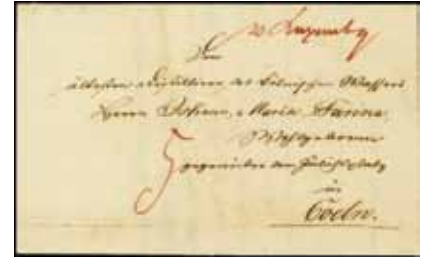 v Luxemburg
Dem
ältesten Distillirer des Kölnischen Wassers
Herrn Johann Maria Farina,
Wohlgeboren
5 gegenüber dem Jülichsplatz
in
Coeln.